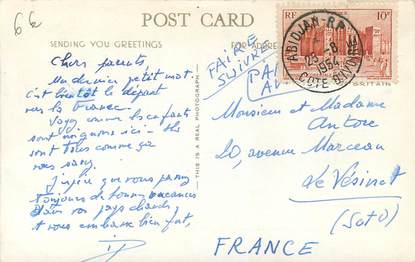 6€
POST CARD
SENDING YOU GREETINGS
FOR ADDRESS
FAIRE
SUIVRE
PAR
ABIDJAN-RP
23-8
1954
COTE D'IVOIRE
RF
10F
BRITAIN
THIS IS A REAL PHOTOGRAPH
Chers parents,
Un dernier petit mot.
C'est bientôt le départ
vers la France.
Voyez comme les enfants
sont mignons ici - ils
sont tous comme ça
vous savez.
J'espère que vous passez
toujours de bonnes vacances
dans vos pays chauds,
et vous embrasse bien fort,
Monsieur et Madame
Antore
20, avenue Marceau
Le Vésinet
(S et O)
FRANCE